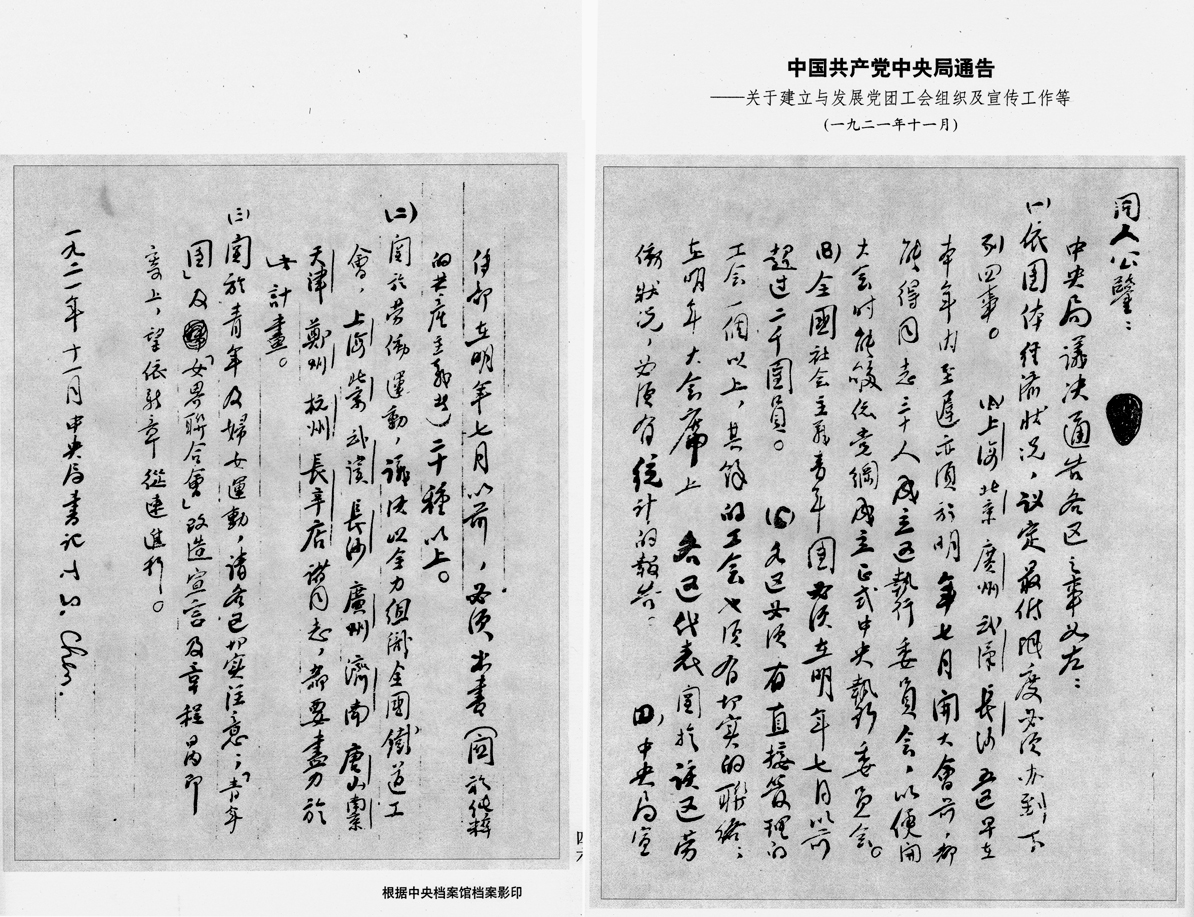 中国共产党中央局通告
——关于建立与发展党团工会组织及宣传工作等
(一九二一年十一月)
同人公鑒：
中央局議决通告各区之事如左：
(一)依团体经济状况，议定最低限度必须办到下
列四事。(A)上海北京廣州武漢長沙五区早在
本年内至遲亦须於明年七月開大會前，都
能得同志三十人成立区執行委員会，以便開
大会时能够依党綱成立正式中央執行委员会。
(B)全國社会主義青年團必须在明年七月以前
超过二千團員。(C)各区必须有直接管理的
工会一個以上，其餘的工会也须有切实的联络；
在明年大会席上各区代表關於該区劳
働状况，必须有统计的報告。(D)中央局宣
傅部在明年七月以前，必须出書(關於纯粹
的共産主義者)二十種以上。
(二)関於劳働運動，議决以全力组織全國鐵道工
會，上海北京武漢長沙廣州濟南唐山南京
天津鄭州杭州長辛店諸同志，都要盡力於
此計畫。
(三)関於青年及婦女運動，請各区切实注意；「青年
團」及「女界聯合會」改造宣言及章程日内即
寄上，望依新章從速進行。
一九二一年十一月中央局書记T.S.Chen.
四六
根据中央档案馆档案影印